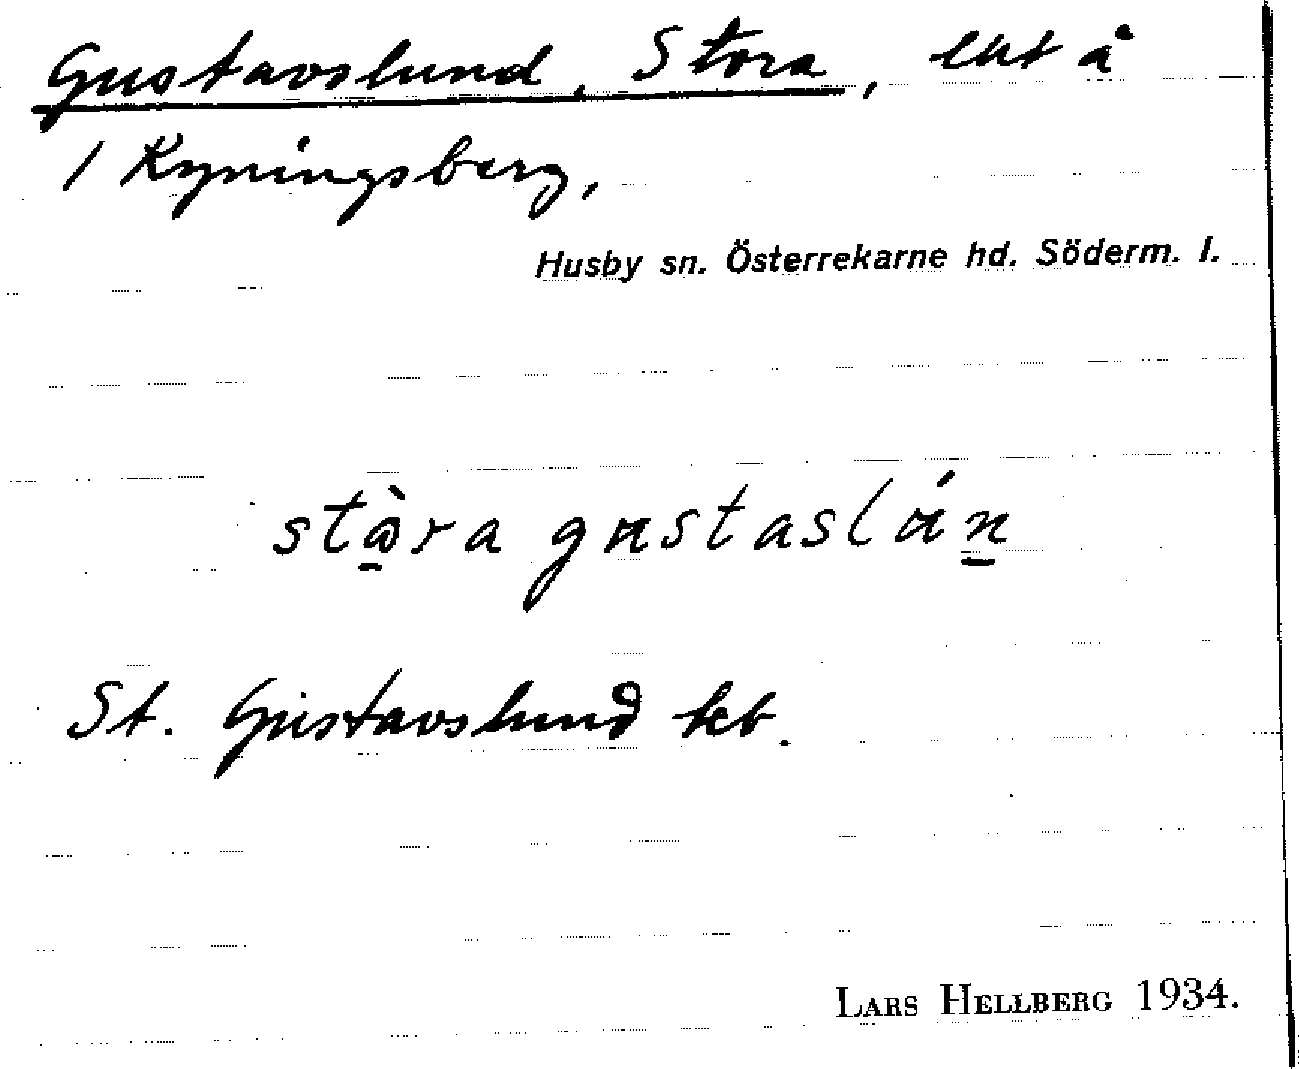 Gustavslund, Stora, lht å
1 Kyringsberg,
Husby sn. Österrekarne hd. Söderm. l.
stara gustaslun
St. Gustavslund kb.
LARS HELLBERG 1934.